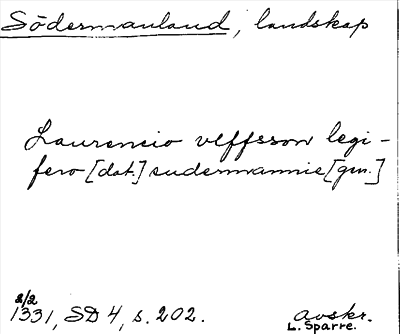 Södermanland, landskap
Laurencio vlffsson legi-
fero [dat.] sudermannie [gen.]
2/2
1331, SD 4, s. 202.
avskr.
L. Sparre.